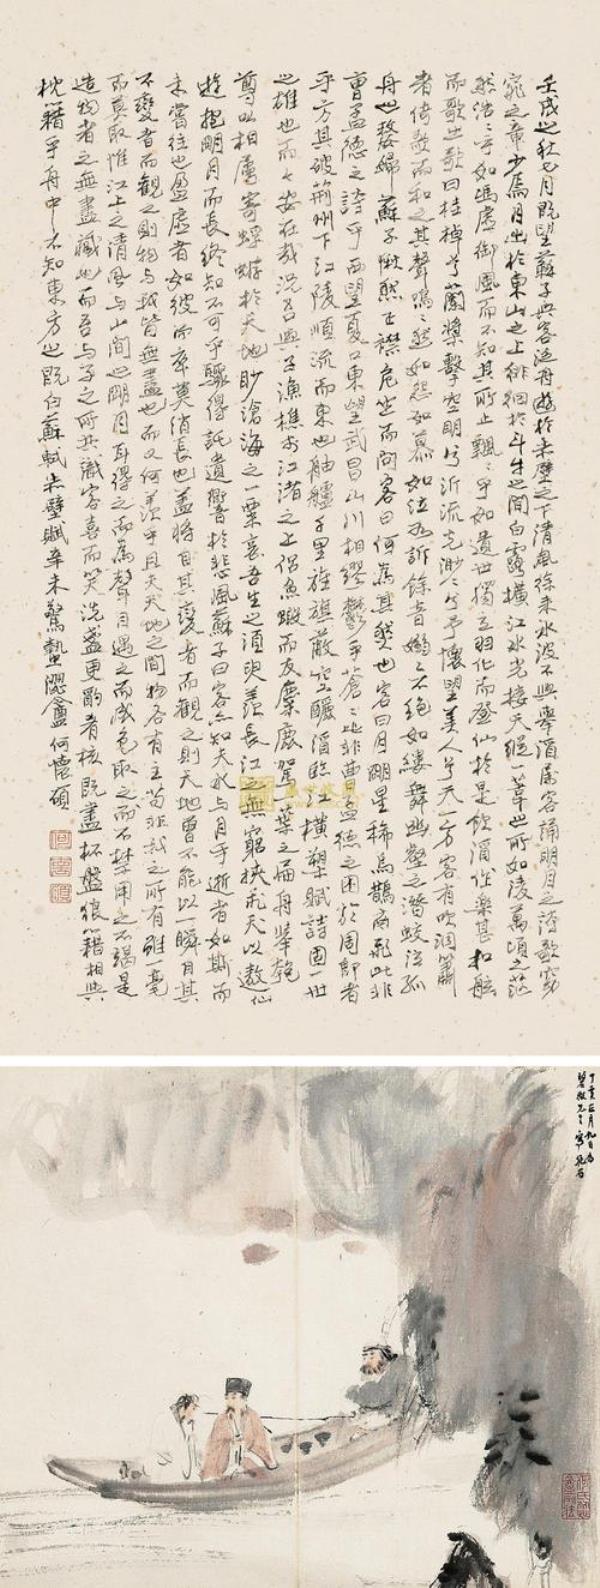 壬戌之秋七月既望蘇子與客泛舟遊於赤壁之下清風徐來水波不興舉酒屬客誦明月之詩歌窈
窕之章少焉月出於東山之上徘徊於斗牛之間白露橫江水光接天縱一葦之所如陵萬頃之茫
然浩浩乎如馮虛御風而不知其所止飄飄乎如遺世獨立羽化而登仙於是飲酒作樂甚扣舷
而歌之歌曰桂棹兮蘭槳擊空明兮泝流光渺渺兮予懷望美人兮天一方客有吹洞簫
者倚歌而和之其聲嗚嗚然如怨如慕如泣如訴餘音嫋嫋不絕如縷舞幽壑之潛蛟泣孤
舟之嫠婦蘇子愀然正襟危坐而問客曰何為其然也客曰月明星稀烏鵲南飛此非
曹孟德之詩乎西望夏口東望武昌山川相繆鬱乎蒼蒼此非曹孟德之困於周郎者
乎方其破荊州下江陵順流而東也舳艫千里旌旗蔽空釃酒臨江橫槊賦詩固一世
之雄也而今安在哉況吾與子漁樵於江渚之上侶魚蝦而友麋鹿駕一葉之扁舟舉匏
尊以相屬寄蜉蝣於天地眇滄海之一粟哀吾生之須臾羨長江之無窮挾飛天以遨仙
遊抱明月而長終知不可乎驟得託遺響於悲風蘇子曰客亦知夫水與月乎逝者如斯而
未嘗往也盈虛者如彼而卒莫消長也蓋將自其變者而觀之則天地曾不能以一瞬自其
不變者而觀之則物與我皆無盡也而又何羨乎且夫天地之間物各有主苟非我之所有雖一毫
而莫取惟江上之清風與山間之明月耳得之而為聲目遇之而成色取之而不禁用之不竭是
造物者之無盡藏也而吾與子之所共識客喜而笑洗盞更酌肴核既盡杯盤狼籍相與
枕籍乎舟中不知東方之既白蘇軾赤壁賦辛未驚蟄隱盦何懷碩
何懷碩
丁亥正月九日為
碧微先生寫抱石